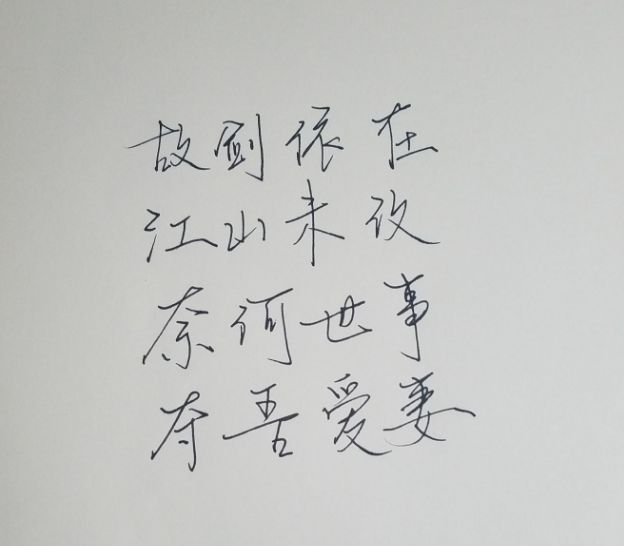 故剑依在
江山未改
奈何世事
夺吾爱妻